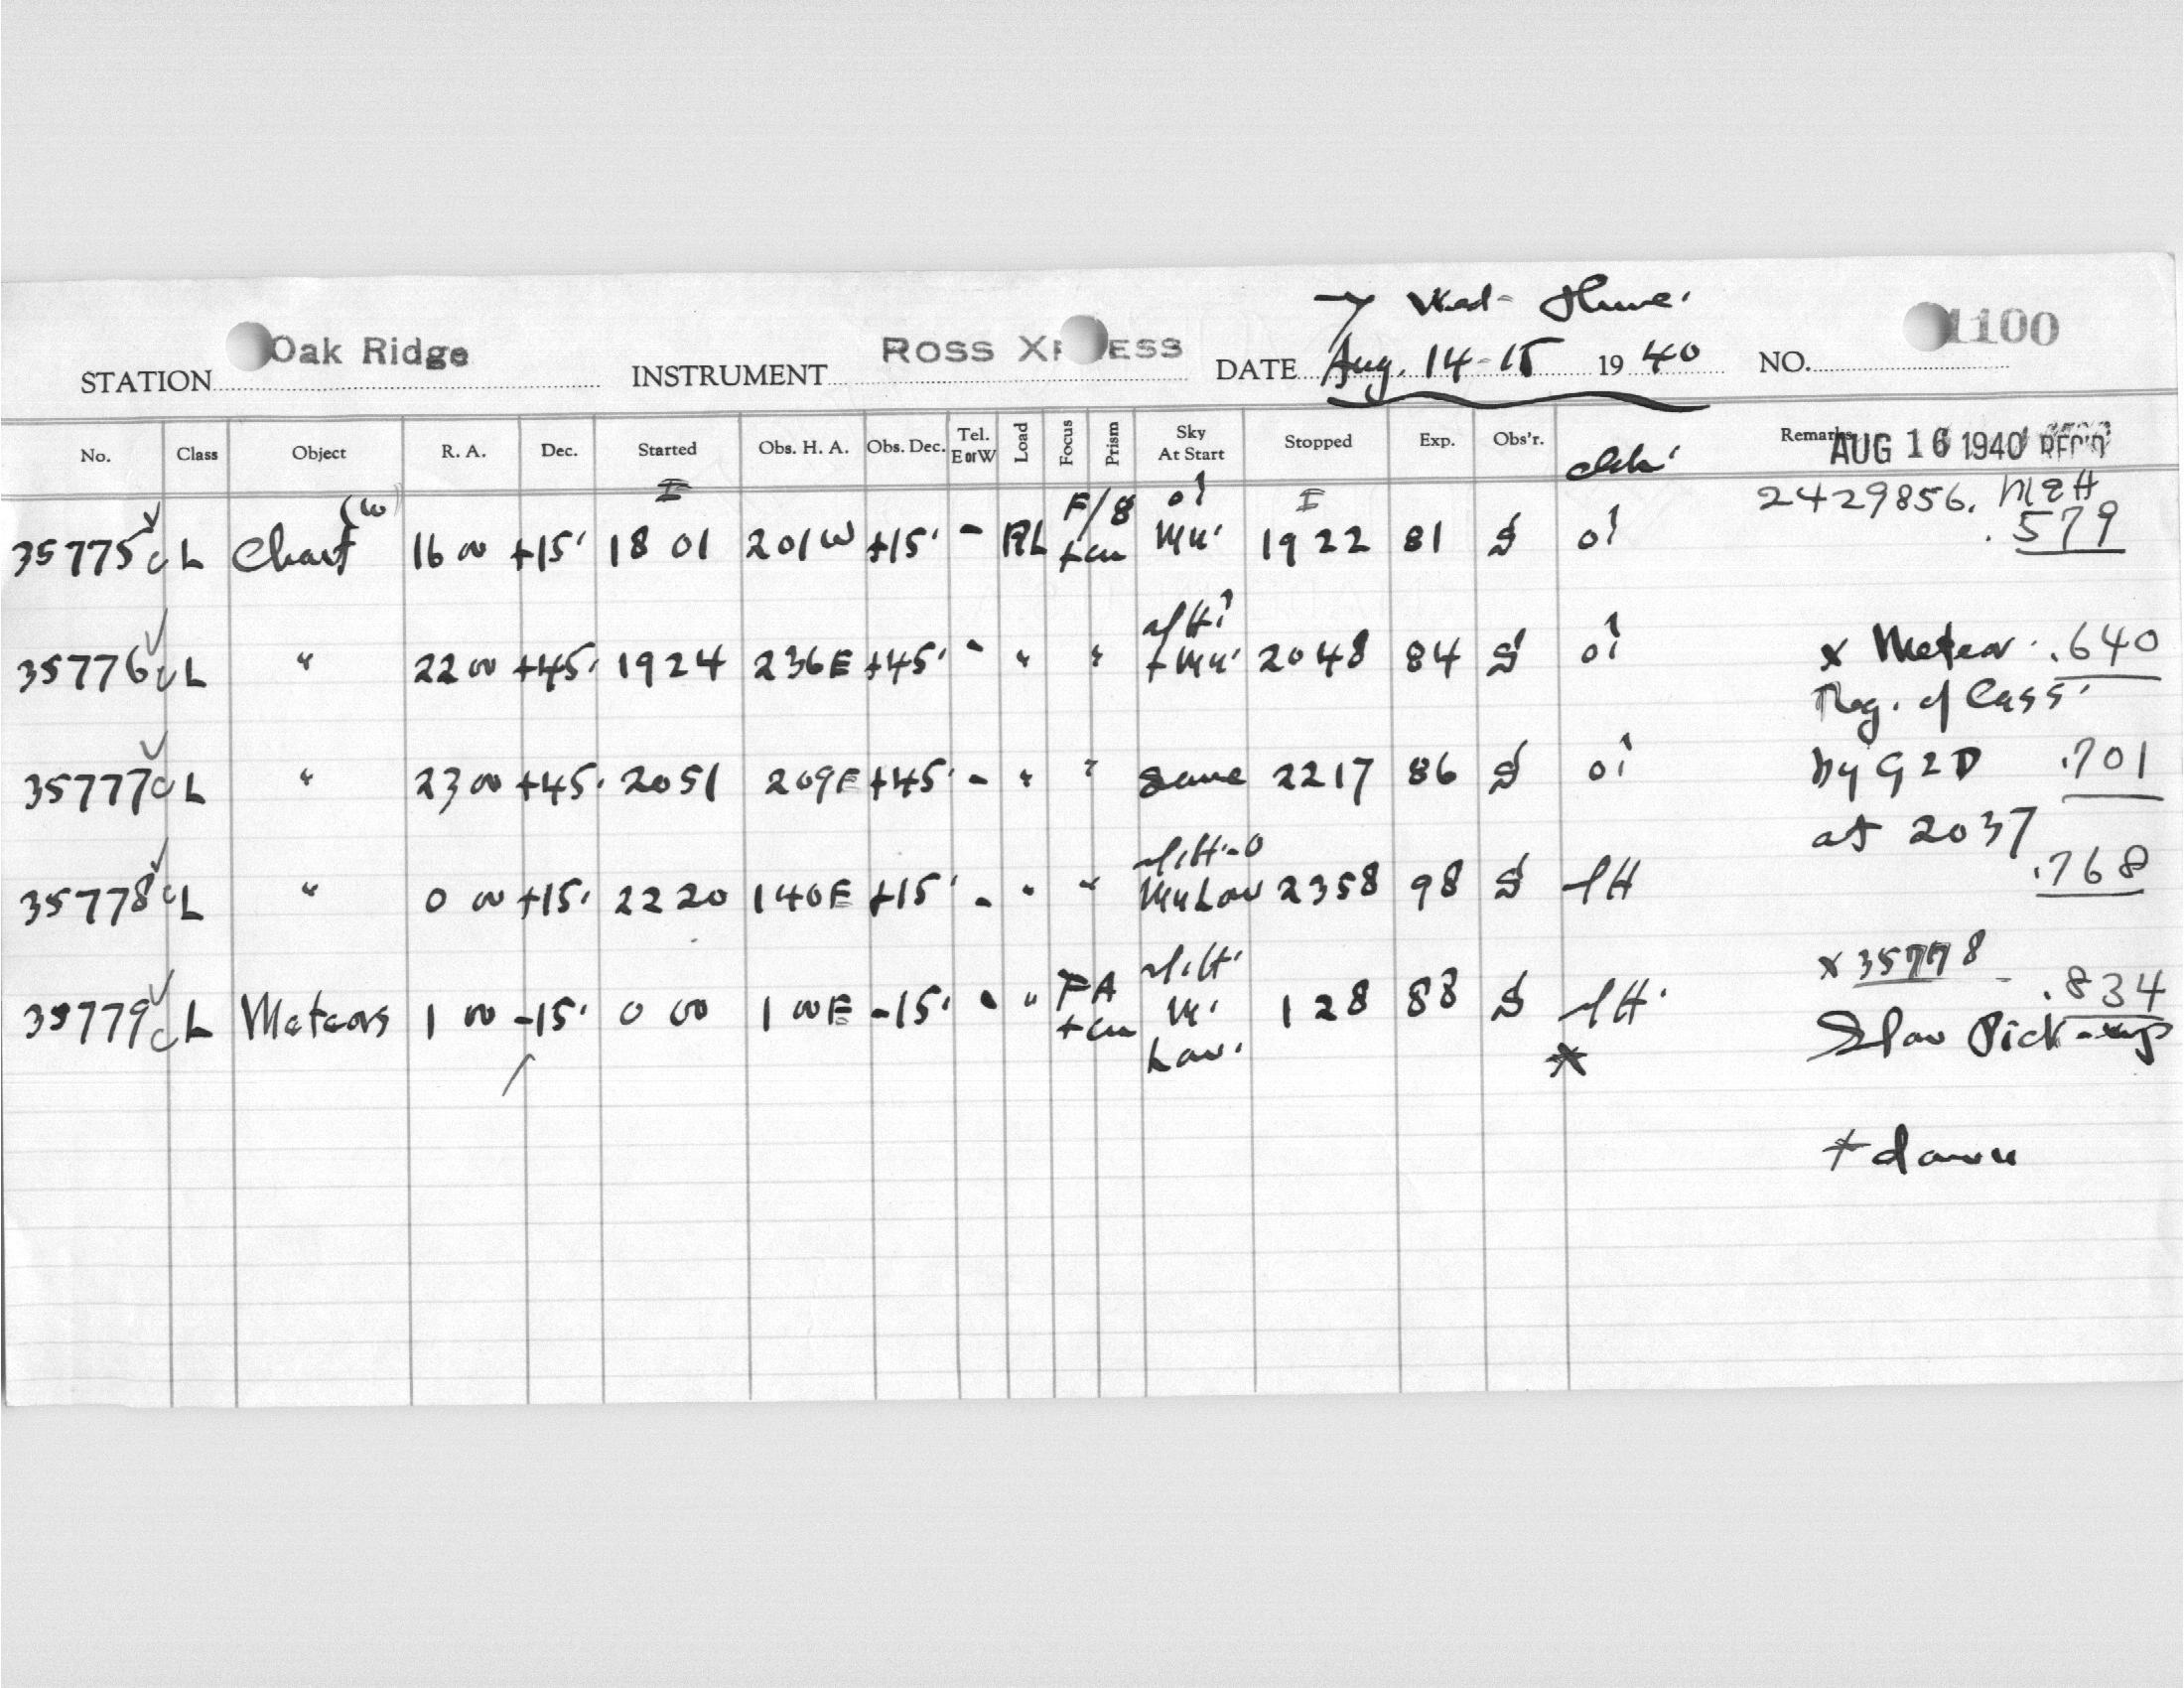 Wed-
STATION Oak Ridge INSTRUMENT ROSS DATE Aug. 14-15 1940 NO. 1100
No. Class Object R. A. Dec. Started Obs. H. A. Obs. Dec. Tel. E or W Load Focus Prism Sky At Start Stopped Exp. Obs'r. Remarks AUG 16 1940 REC'D
2429856.
35775 L Chart (W) 16 00 +15° 18 01 201W +15° - RL F/8 1922 81 S .579
35776 L " 22 00 +45° 1924 236E +45° - " " 2048 84 S x Meteor .640
Reg. of Cass.
35777 L " 23 00 +45° 2051 209E +45° - " " Same 2217 86 S by G2D .701
at 2037
35778 L " 0 00 +15° 2220 140E +15° - " " 2358 98 S .768
x 35778
35779 L Meteors 1 00 -15° 0 00 1 00E -15° - " 1 28 88 S .834
Slow Pick-up
Low.
* dawn